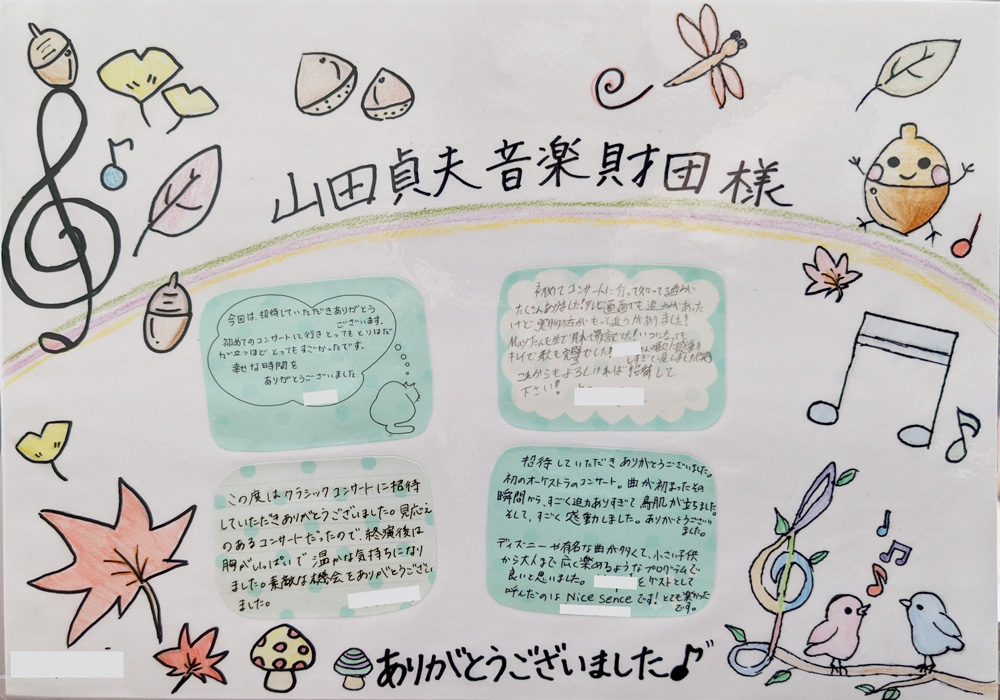 山田貞夫音楽財団様
今回は、招待していただきありがとう
ございます。
初めてのコンサートに行きとってもとりはだ
が立つほどとってもすごかったです。
幸せな時間を
ありがとうございました
初めてコンサートに行って知ってる曲が
たくさんありました!テレビ画面でも迫力があった
けど実物の方がもっと迫力がありました!
キレイで歌も完璧でした!
これからもよろしければ招待して
下さい!
この度はクラシックコンサートに招待
していただきありがとうございました。見応え
のあるコンサートだったので、終演後は
胸がいっぱいで温かな気持ちになり
ました。素敵な機会をありがとうござい
ました。
招待していただきありがとうございました。
初のオーケストラのコンサート。曲が初まったその
瞬間から、すごく迫力ありすぎて鳥肌が立ちました。
そして、すごく感動しました。ありがとうござい
ました。
ディズニーや有名な曲が多くて、小さい子供
から大人まで広く楽めるようなプログラムで
良いと思いました。 をゲストとして
呼んだのはNice senceです!とても楽かった
です。
ありがとうございました